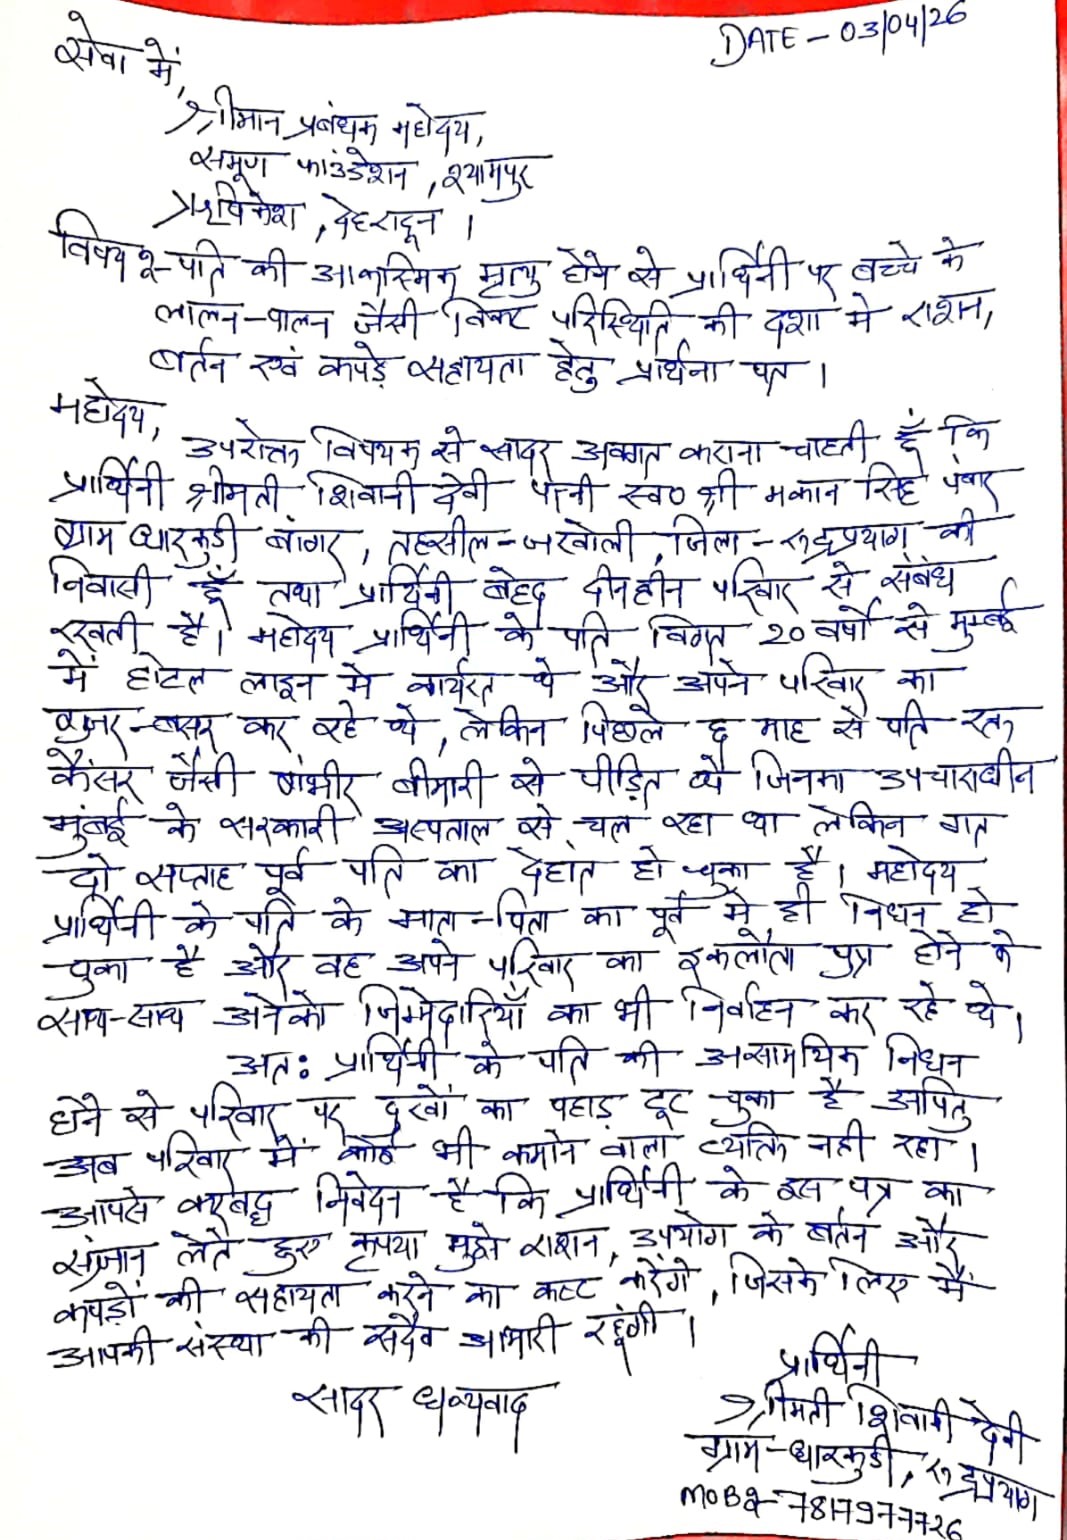 DATE - 03/04/26
सेवा में,
श्रीमान प्रबंधक महोदय,
समूण फाउंडेशन, श्यामपुर
ऋषिकेश, देहरादून ।
विषय :- पति की आकस्मिक मृत्यु होने से प्रार्थिनी पर बच्चे के
लालन-पालन जैसी विकट परिस्थिति की दशा मे राशन,
बर्तन एवं कपड़े सहायता हेतु प्रार्थना पत्र ।
महोदय,
उपरोक्त विषयक से सादर अवगत कराना चाहती हूँ कि
प्रार्थिनी श्रीमती शिवानी देवी पत्नी स्व० श्री मकान सिंह पंवार
ग्राम धारकुडी बांगर, तहसील-जखोली, जिला-रुद्रप्रयाग की
निवासी हूँ तथा प्रार्थिनी बेहद दीनहीन परिवार से संबंध
रखती है। महोदय प्रार्थिनी के पति विगत २० वर्षों से मुम्बई
में होटल लाइन मे कार्यरत थे और अपने परिवार का
गुजर-बसर कर रहे थे, लेकिन पिछले ६ माह से पति रक्त
कैंसर जैसी गंभीर बीमारी से पीड़ित थे जिनका उपचाराधीन
मुंबई के सरकारी अस्पताल से चल रहा था लेकिन गत
दो सप्ताह पूर्व पति का देहांत हो चुका है। महोदय
प्रार्थिनी के पति के माता-पिता का पूर्व मे ही निधन हो
चुका है और वह अपने परिवार का इकलौता पुत्र होने के
साथ-साथ अनेको जिम्मेदारियाँ का भी निर्वाहन कर रहे थे।
अतः प्रार्थिनी के पति की असामयिक निधन
होने से परिवार पर दुखों का पहाड़ टूट चुका है अपितु
अब परिवार में कोई भी कमाने वाला व्यक्ति नही रहा ।
आपसे करबद्ध निवेदन है कि प्रार्थिनी के इस पत्र का
संज्ञान लेते हुए कृपया मुझे राशन, उपयोग के बर्तन और
कपड़ों की सहायता करने का कष्ट करेंगे, जिसके लिए मैं
आपकी संस्था की सदैव आभारी रहूंगी ।
सादर धन्यवाद
प्रार्थिनी
श्रीमती शिवानी देवी
ग्राम-धारकुडी, रुद्रप्रयाग
MOB :- 7817977726